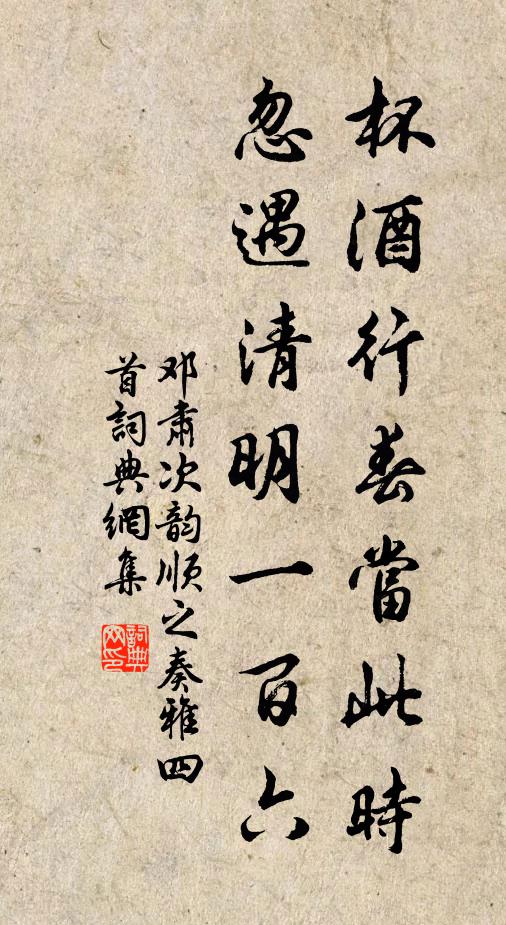 杯酒行春當此時
忽遇清明一百六
邓肃次韵顺之奏雅四
首詞典網集
詞典网印